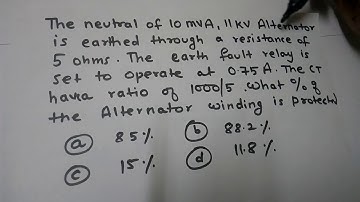 The neutral of 10 MVA, 11 KV Alternator
is earthed through a resistance of
5 ohms. The earth fault relay is
set to operate at 0.75 A. The CT
have a ratio of 1000/5. what % of
the Alternator winding is protected
(a) 85 %
(b) 88.2 %
(c) 15 %
(d) 11.8 %